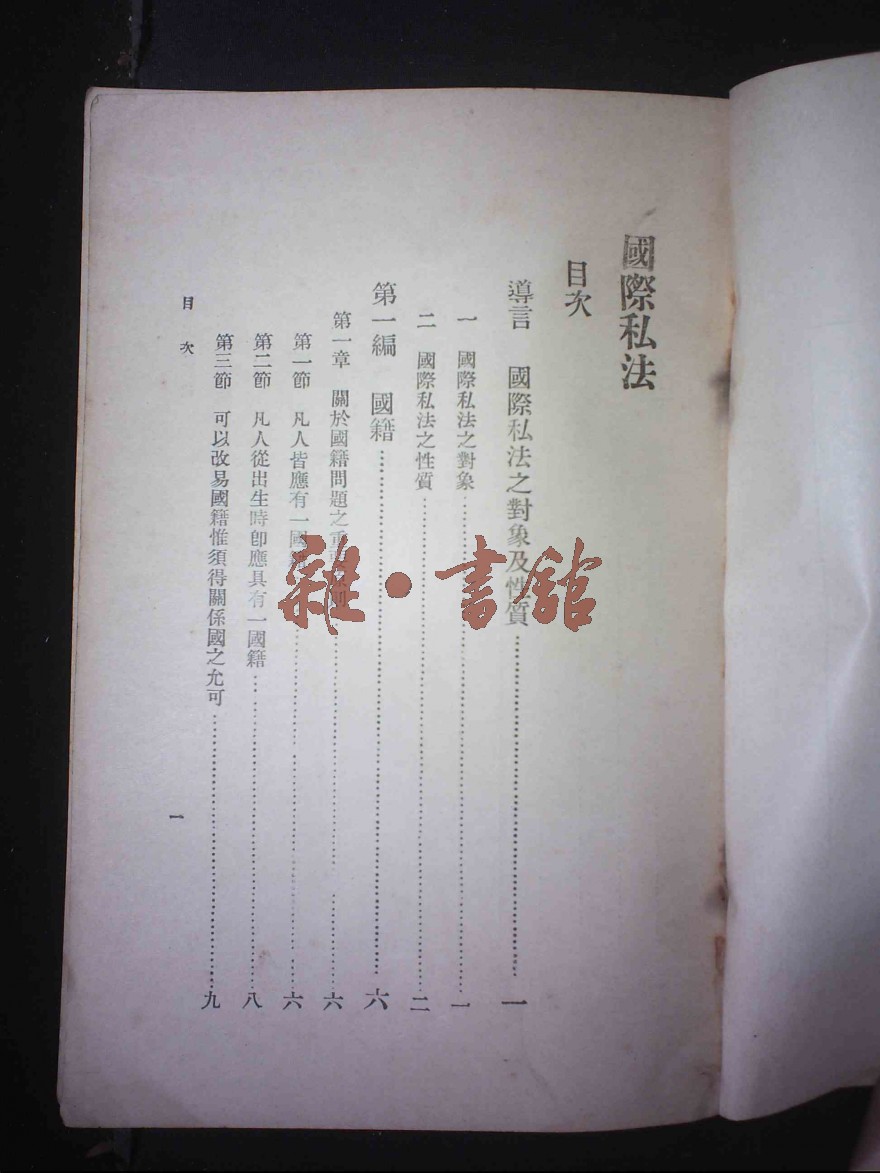 國際私法
目次
導言　國際私法之對象及性質……………一
一　國際私法之對象……………一
二　國際私法之性質……………二
第一編　國籍……………六
第一章　關於國籍問題之重要原則……………六
第一節　凡人皆應有一國籍……………六
第二節　凡人從出生時卽應具有一國籍……………八
第三節　可以改易國籍惟須得關係國之允可……………九
目次
一
雜·書館